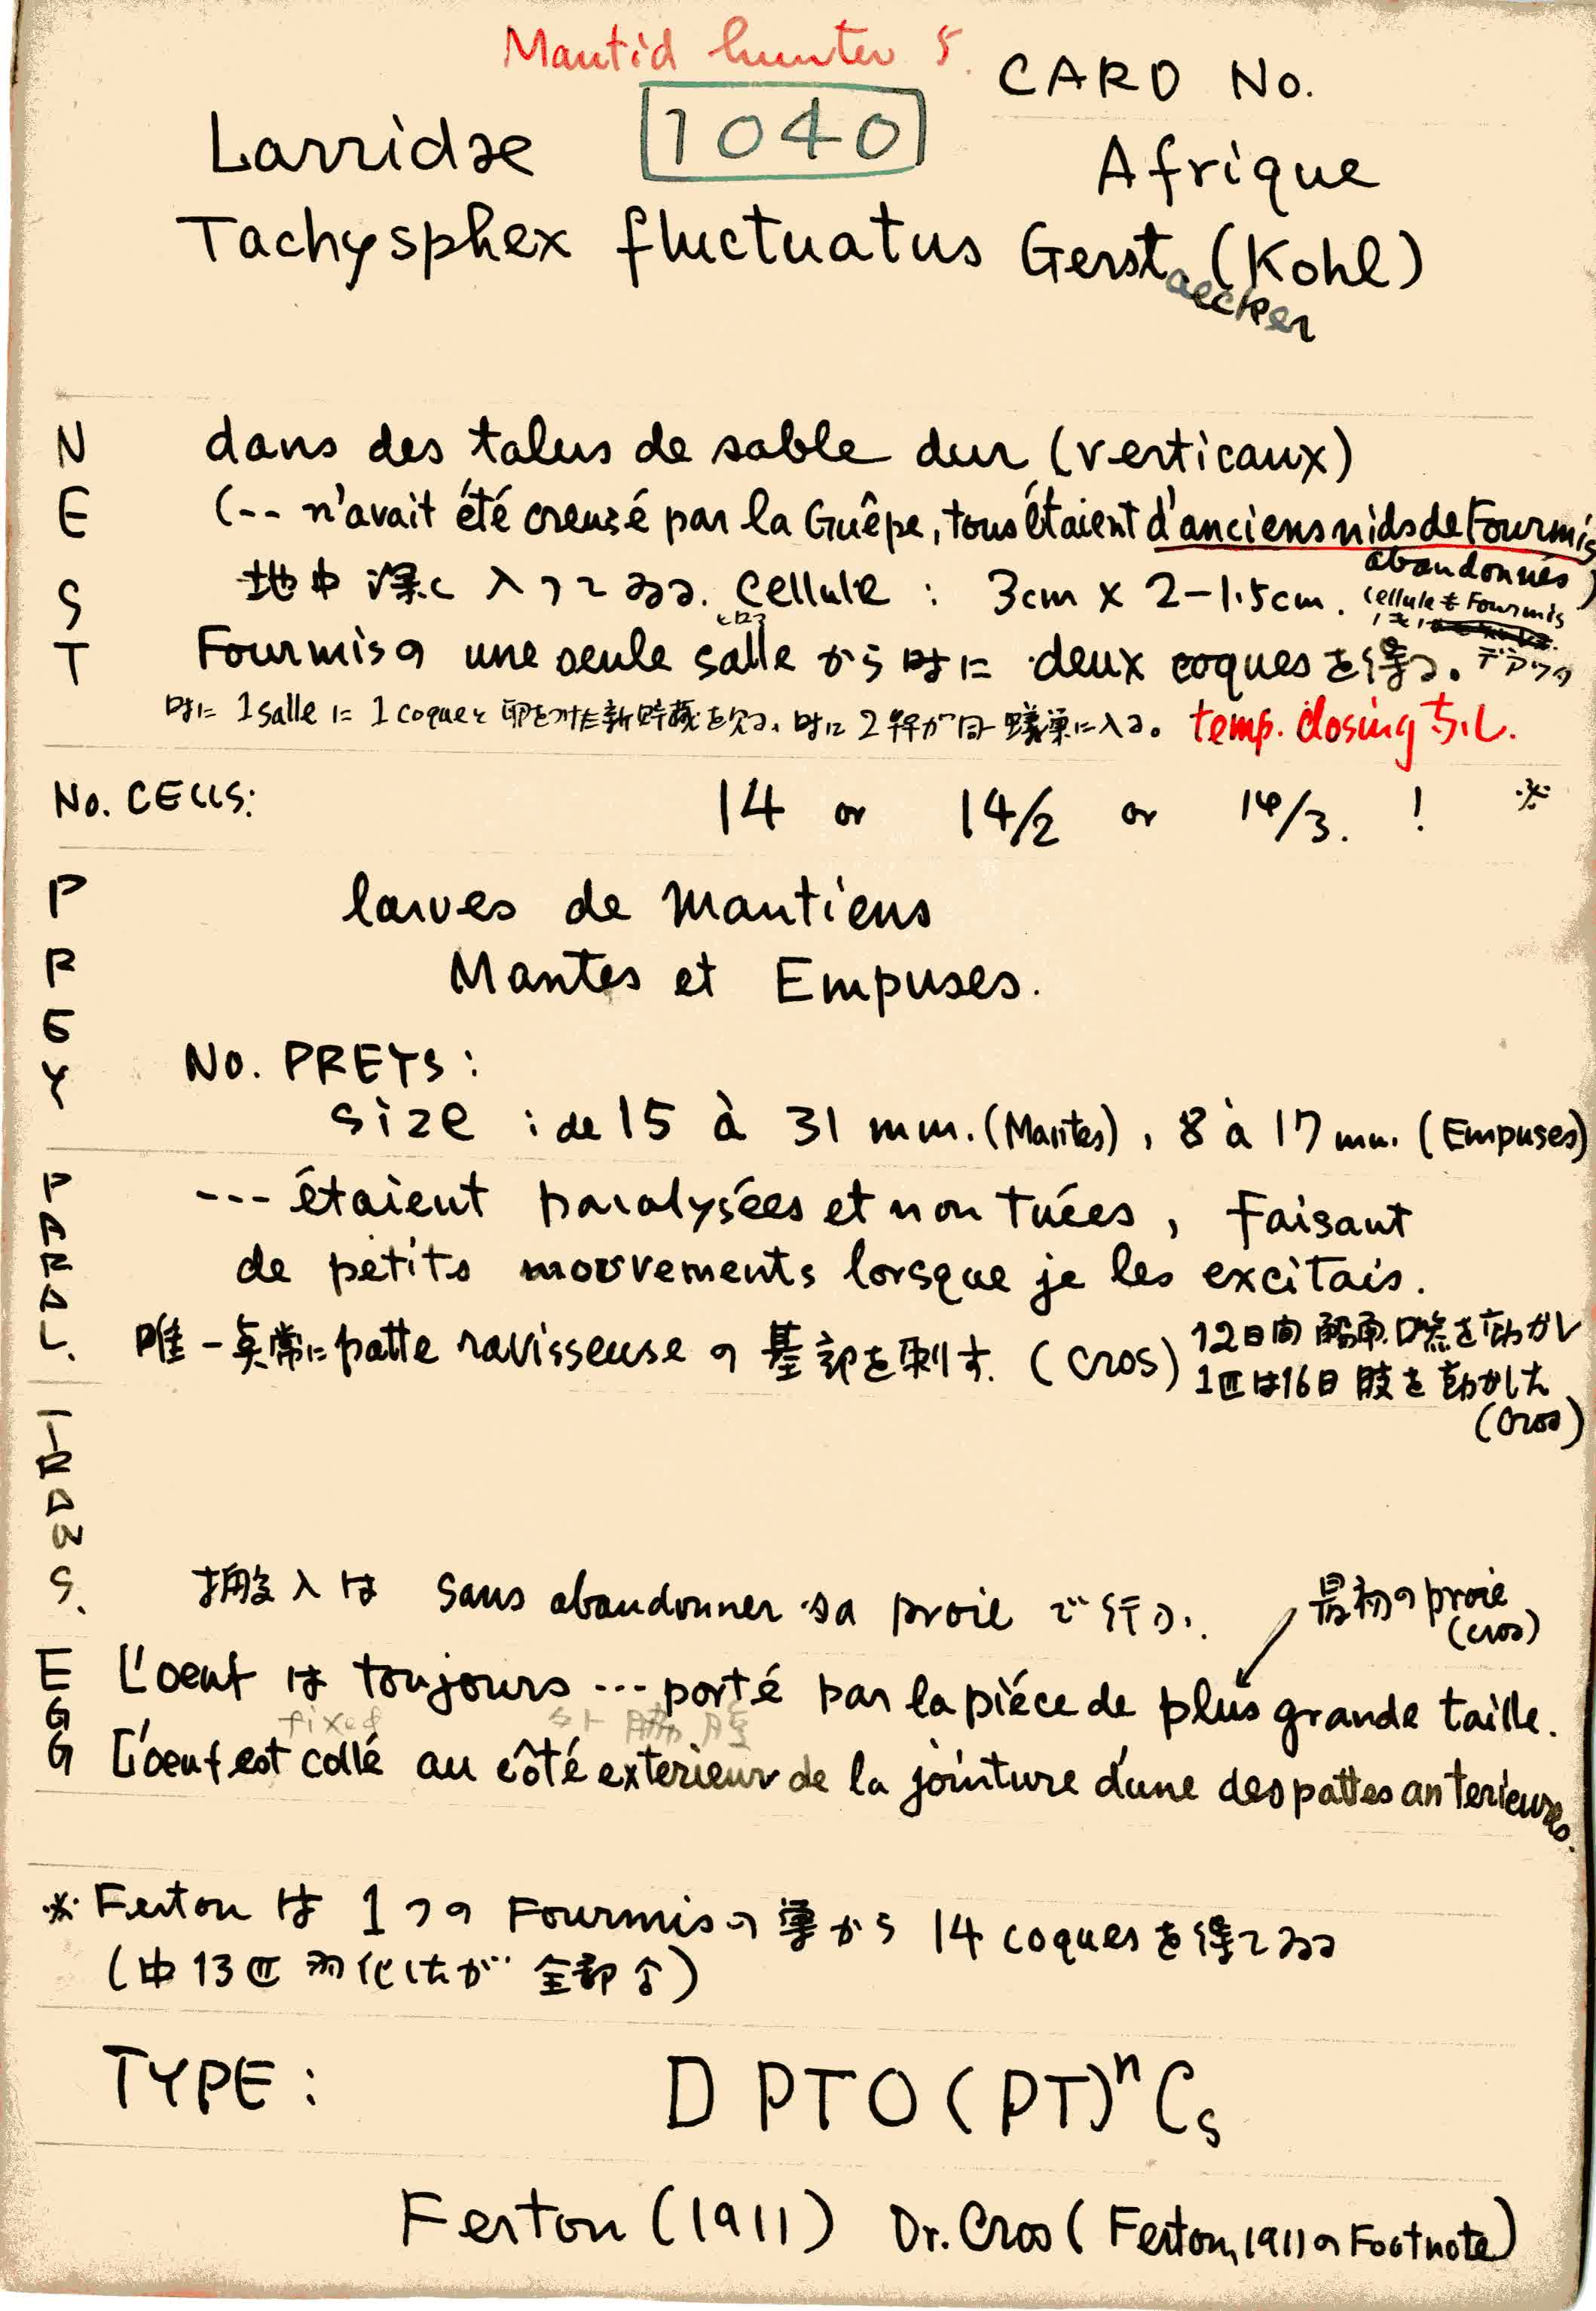 Mantid hunter 5.
CARD No.
Larridae 1040 Afrique
Tachysphex fluctuatus Gerstaecker (Kohl)
NEST
dans des talus de sable dur (verticaux)
(-- n'avait été creusé par la Guêpe, tous étaient d'anciens nids de Fourmis abandonnés)
地中深く入つてゐる. cellule : 3cm × 2-1.5cm. cellule も Fourmis
Fourmisの une seule salle から時に deux coques を得る.
時に 1 salle に 1 coque と卵をつけた新貯蔵を 時に2 が同一蟻巣に入る。 temp. closing なし.
No. CELLS: 14 or 14/2 or 14/3. ! ※
PREY
larves de Mantiens
Mantes et Empuses.
No. PREYS :
size : de 15 à 31 mm. (Mantes), 8 à 17 mm. (Empuses)
PARAL.
--- étaient paralysées et non tuées, faisant
de petits mouvements lorsque je les excitais.
唯一 常に patte ravisseuse の基部を刺す. (Cros) 12日間 を動かし
1匹は16日肢を動かした
(Cros)
TRANS.
搬入は sans abandonner sa proie で行う.
最初の proie
(Cros)
EGG
L'oeuf は toujours --- porté par la piéce de plus grande taille.
fixed 外
L'oeuf est collé au côté exterieur de la jointure d'une des pattes anterieures.
※ Ferton は 1つの Fourmisの巣から 14 coques を得てゐる
(中13匹羽化したが 全部♀)
TYPE : D PTO(PT)ⁿCs
Ferton (1911) Dr. Cros (Ferton, 1911 の Footnote)